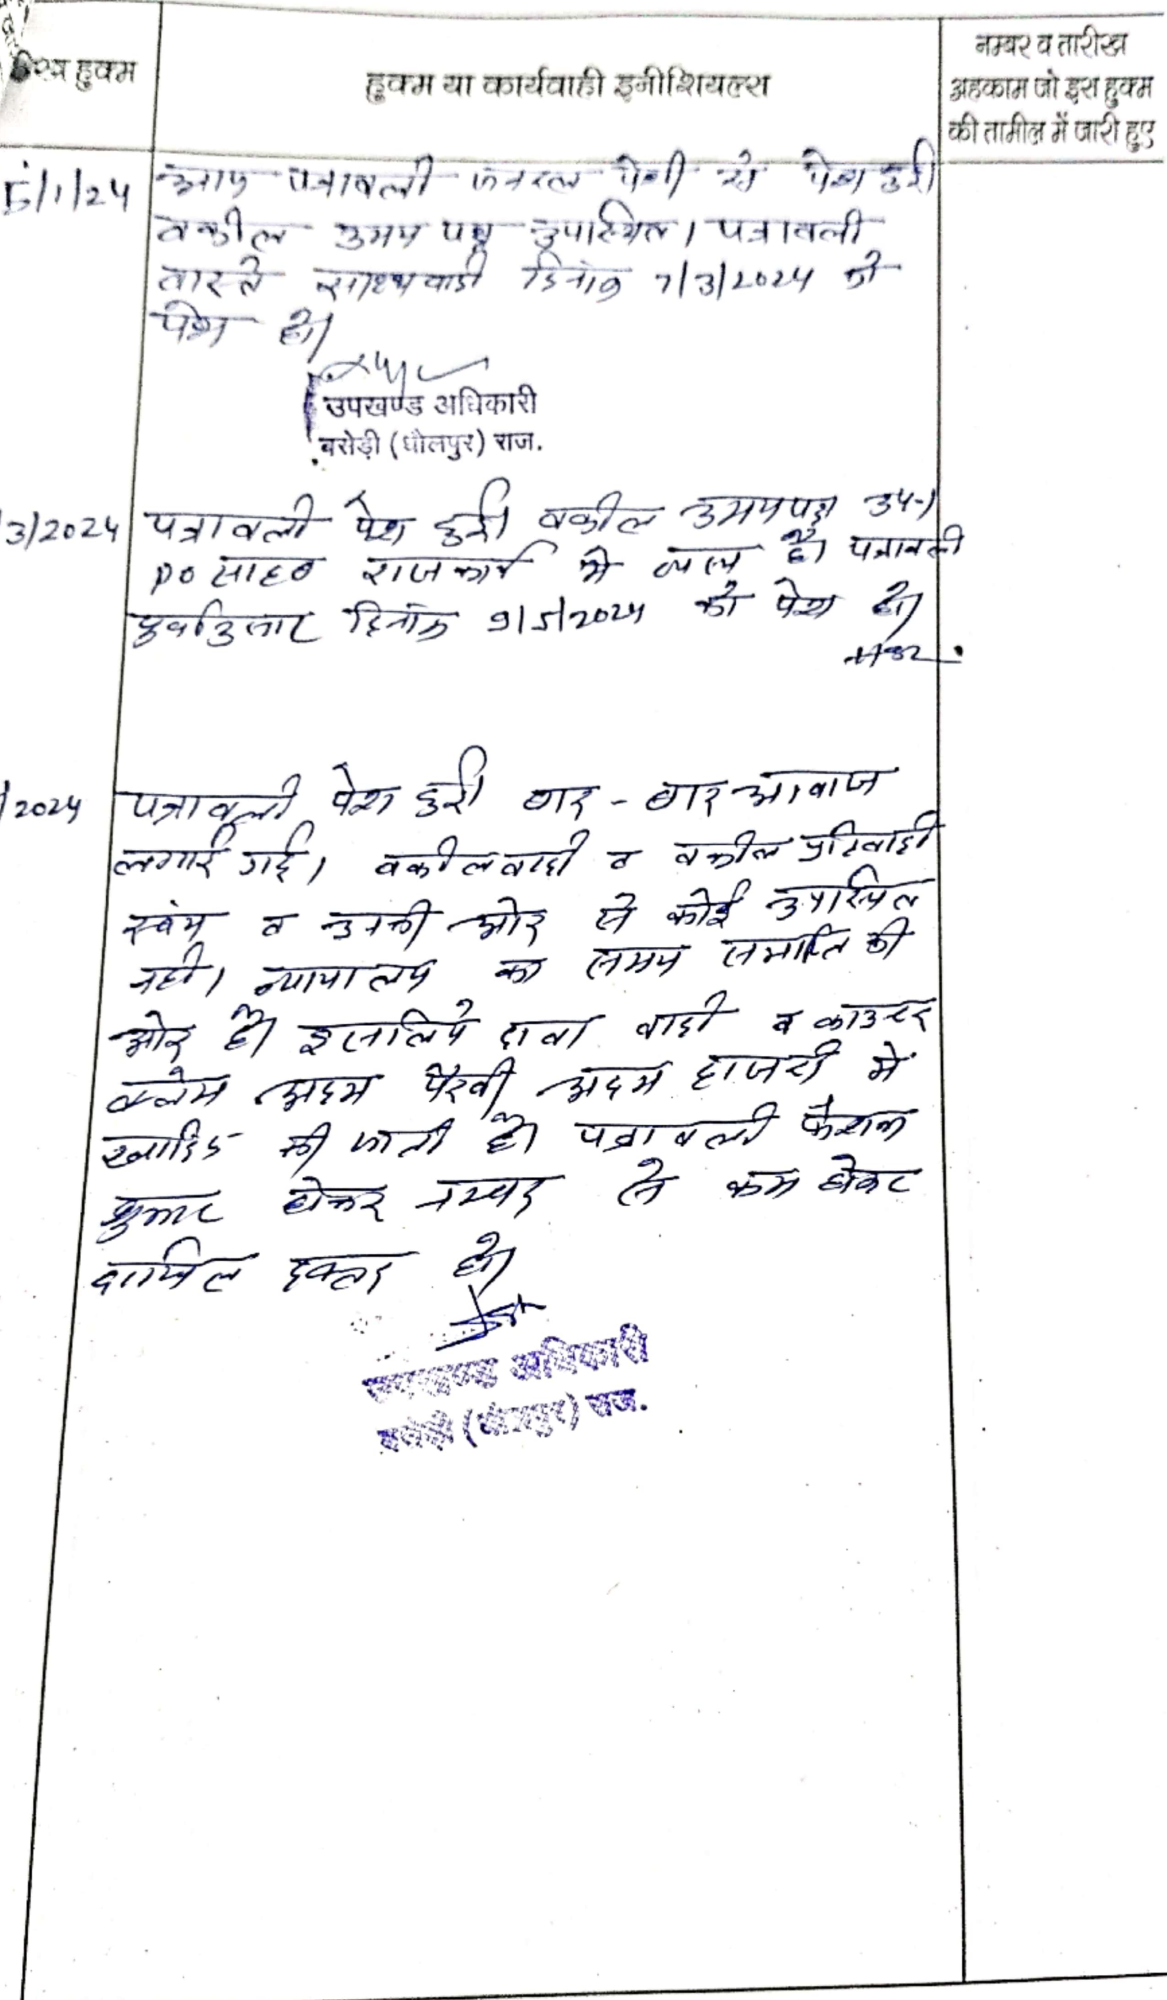 हुक्म
हुक्म या कार्यवाही इनीशियल्स
नम्बर व तारीख
अहकाम जो इस हुक्म
की तामील में जारी हुए
5/1/24
आज पत्रावली जनरल पेशी से पेश हुई
वकील उभय पक्ष उपस्थित। पत्रावली
वास्ते साक्ष्य वादी दिनांक 7/3/2024 को
पेश हो।
उपखण्ड अधिकारी
बसेड़ी (धौलपुर) राज.
3/2024
पत्रावली पेश हुई। वकील उभयपक्ष उप।
PO साहब राजकार्य में व्यस्त है। पत्रावली
पूर्वानुसार दिनांक 9/5/2024 को पेश हो।
/2024
पत्रावली पेश हुई बार - बार आवाज
लगाई गई। वकील वादी व वकील प्रतिवादी
स्वंय व उनकी ओर से कोई उपस्थित
नही। न्यायालय का समय समाप्ति की
ओर है। इसलिये दावा वादी व काउन्टर
क्लेम अदम पैरवी अदम हाजरी में
खारिज की जाती है। पत्रावली फैसल
शुमार होकर नम्बर से कम होकर
दाखिल दफ्तर हो।
उपखण्ड अधिकारी
बसेड़ी (धौलपुर) राज.